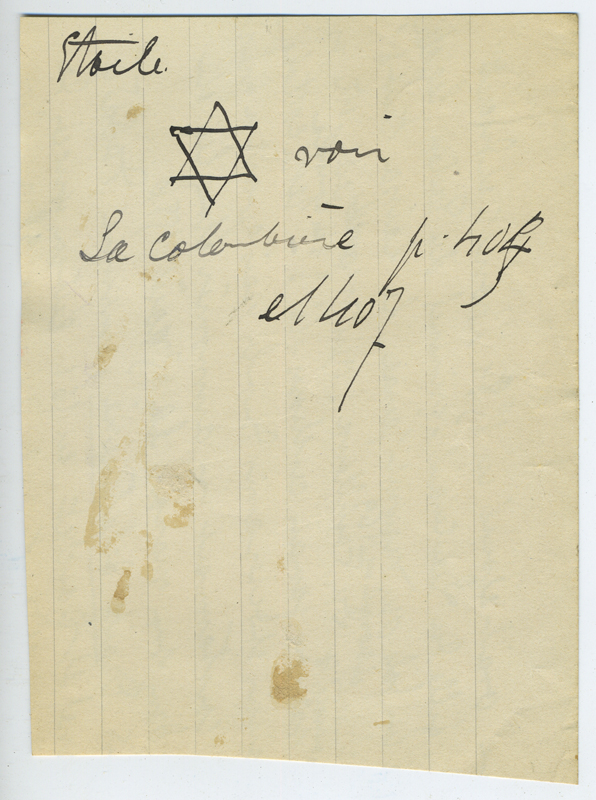 Etoile.
voir
La Colombière p. 404
et 407